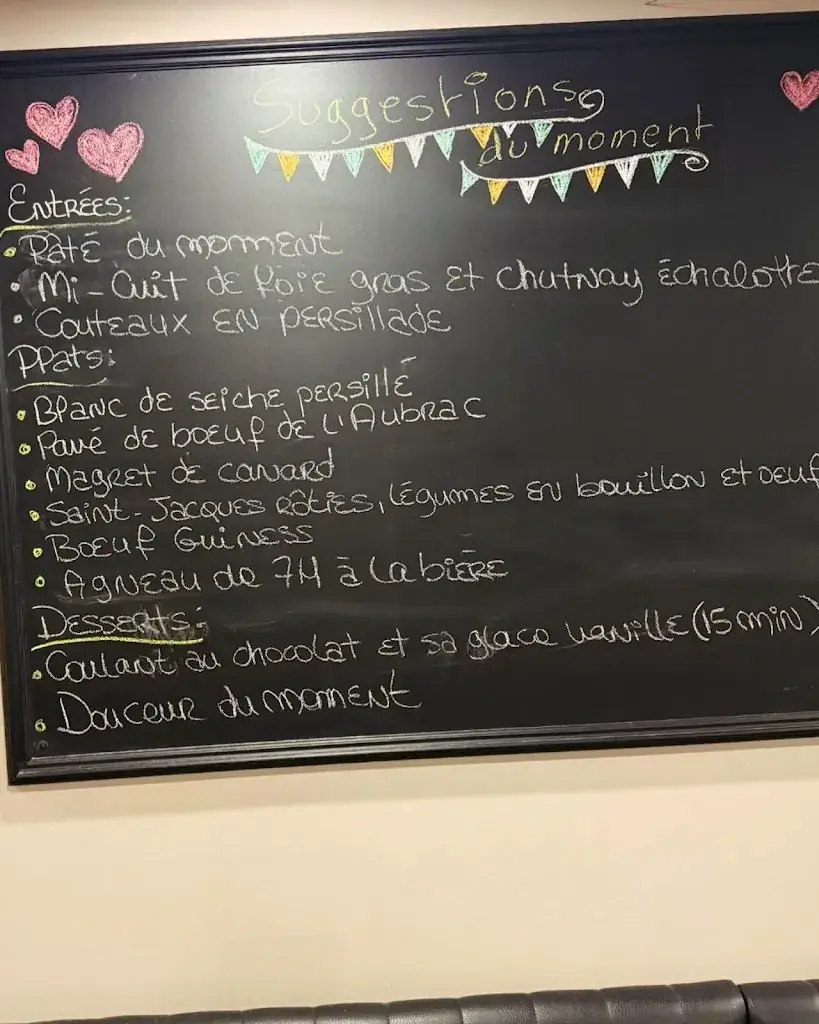 Suggestions
du moment
ENTRÉES:
• Pâté du moment
• Mi-Cuit de foie gras et chutnay échalotte
• Couteaux en persillade
Plats:
• Blanc de seiche persillé
• Pavé de boeuf de l'Aubrac
• Magret de canard
• Saint-Jacques rôties, légumes en bouillon et oeuf
• Boeuf Guiness
• Agneau de 7H à la bière
Desserts:
• Coulant au chocolat et sa glace vanille (15 min)
• Douceur du moment